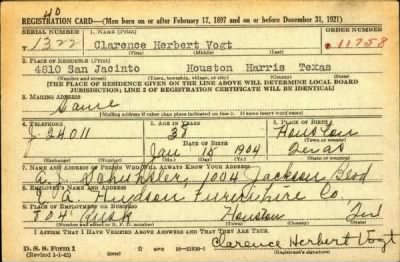 40
REGISTRATION CARD—(Men born on or after February 17, 1897 and on or before December 31, 1921)
SERIAL NUMBER 1. NAME (Print) ORDER NUMBER
T 1322 Clarence Herbert Vogt 11758
2. PLACE OF RESIDENCE (Print)
4810 San Jacinto Houston Harris Texas
(Number and street) (Town, township, village, or city) (County) (State)
[THE PLACE OF RESIDENCE GIVEN ON THE LINE ABOVE WILL DETERMINE LOCAL BOARD
JURISDICTION; LINE 2 OF REGISTRATION CERTIFICATE WILL BE IDENTICAL]
3. MAILING ADDRESS
Same
4. TELEPHONE 5. AGE IN YEARS 6. PLACE OF BIRTH
J-24011 38 Houston
DATE OF BIRTH (Town or county)
Jan 15 1904 Texas
(Exchange) (Number) (Mo.) (Day) (Yr.) (State or country)
7. NAME AND ADDRESS OF PERSON WHO WILL ALWAYS KNOW YOUR ADDRESS
1004 Jackson Blvd
8. EMPLOYER'S NAME AND ADDRESS
Hudson Furniture Co.
9. PLACE OF EMPLOYMENT OR BUSINESS
804 Rusk Houston
(Number and street or R. F. D. number) (Town) (County) (State)
I AFFIRM THAT I HAVE VERIFIED ABOVE ANSWERS AND THAT THEY ARE TRUE.
D. S. S. Form 1 Clarence Herbert Vogt
(Revised 1-1-42) (over) (Registrant's signature)